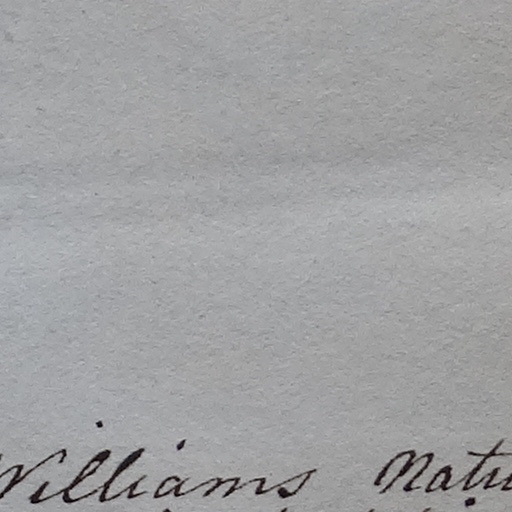 Williams Natu